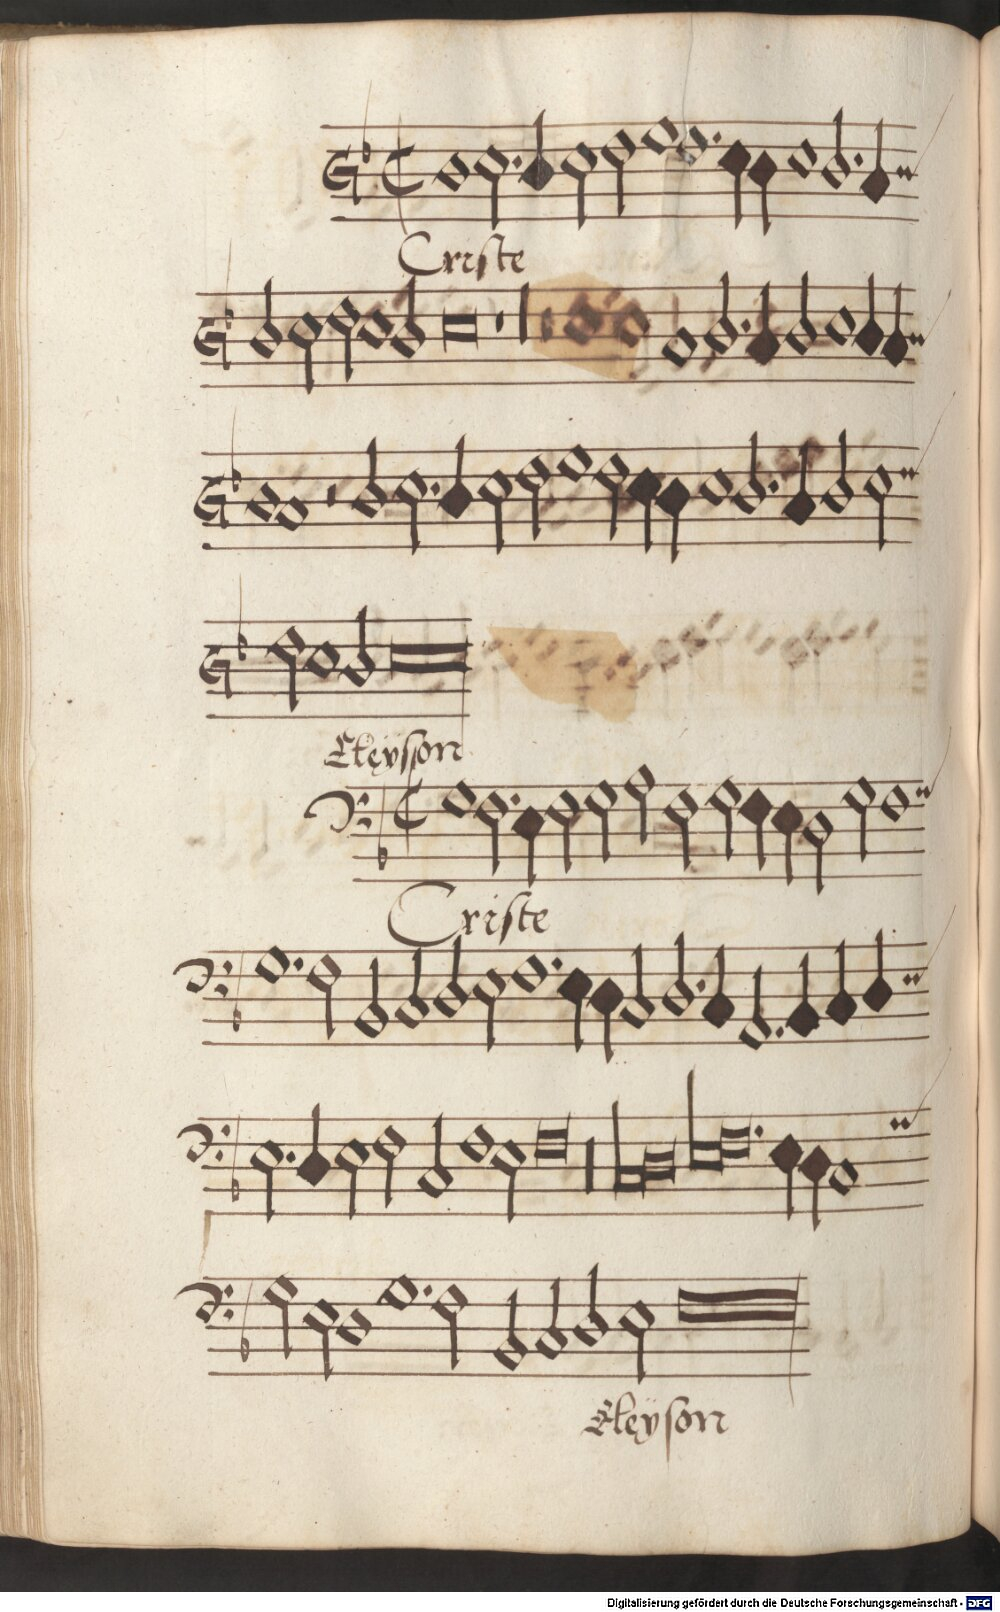 Criste
Eleÿson
Criste
Eleÿson
Digitalisierung gefördert durch die Deutsche Forschungsgemeinschaft - DFG